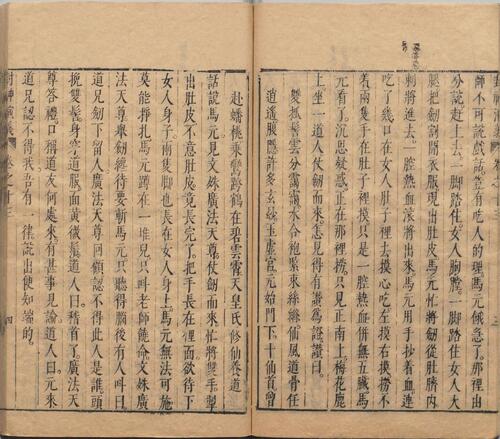 師不可說戲話豈有吃人的理馬元餓急了那裡由
分說赶上去一脚踏住女人胸膛一脚踏住女人大
腿把劍割開衣服現出肚皮馬元忙將劍從肚臍內
刺將進去一腔熱血滾將出來馬元用手抄着血連
吃了幾口在女人肚子裡去摸心吃左摸右摸撈不
着兩隻手在肚子裡摸只是一腔熱血併無五臟馬
元看了沉思疑惑正在那裡撈只見正南上梅花鹿
上坐一道人仗劍而來怎見得有讚為證讚曰
雙抓髻雲分靄靄水合袍緊束絲絛仙風道骨任
逍遙腹隱許多玄妙玉虛宮元始門下十仙首曾
赴蟠桃乘鸞跨鶴在碧雲霄天皇氏修仙養道
話說馬元見文殊廣法天尊仗劍而來忙將雙手掣
出肚皮不意肚皮竟長完了把手長在裡面欲待下
女人身子兩隻脚也長在女人身上馬元無法可施
莫能掙扎馬元蹲在一堆兒只叫老師饒命文殊廣
法天尊舉劍纔待要斬馬元只聽得腦後有人叫曰
道兄劍下留人廣法天尊回顧認不得此人是誰頭
挽雙髻身穿道服面黃微鬚道人曰稽首了廣法天
尊答禮口稱道友何處來有甚事見諭道人曰元來
道兄認不得我吾有一律說出便知端的
封神演義 卷之十三 四